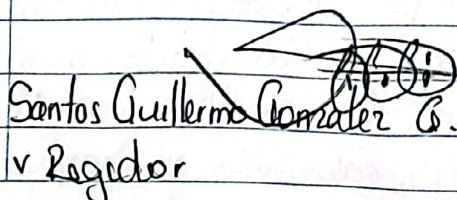 Santos Guillermo Gonzalez G.
v Regidor